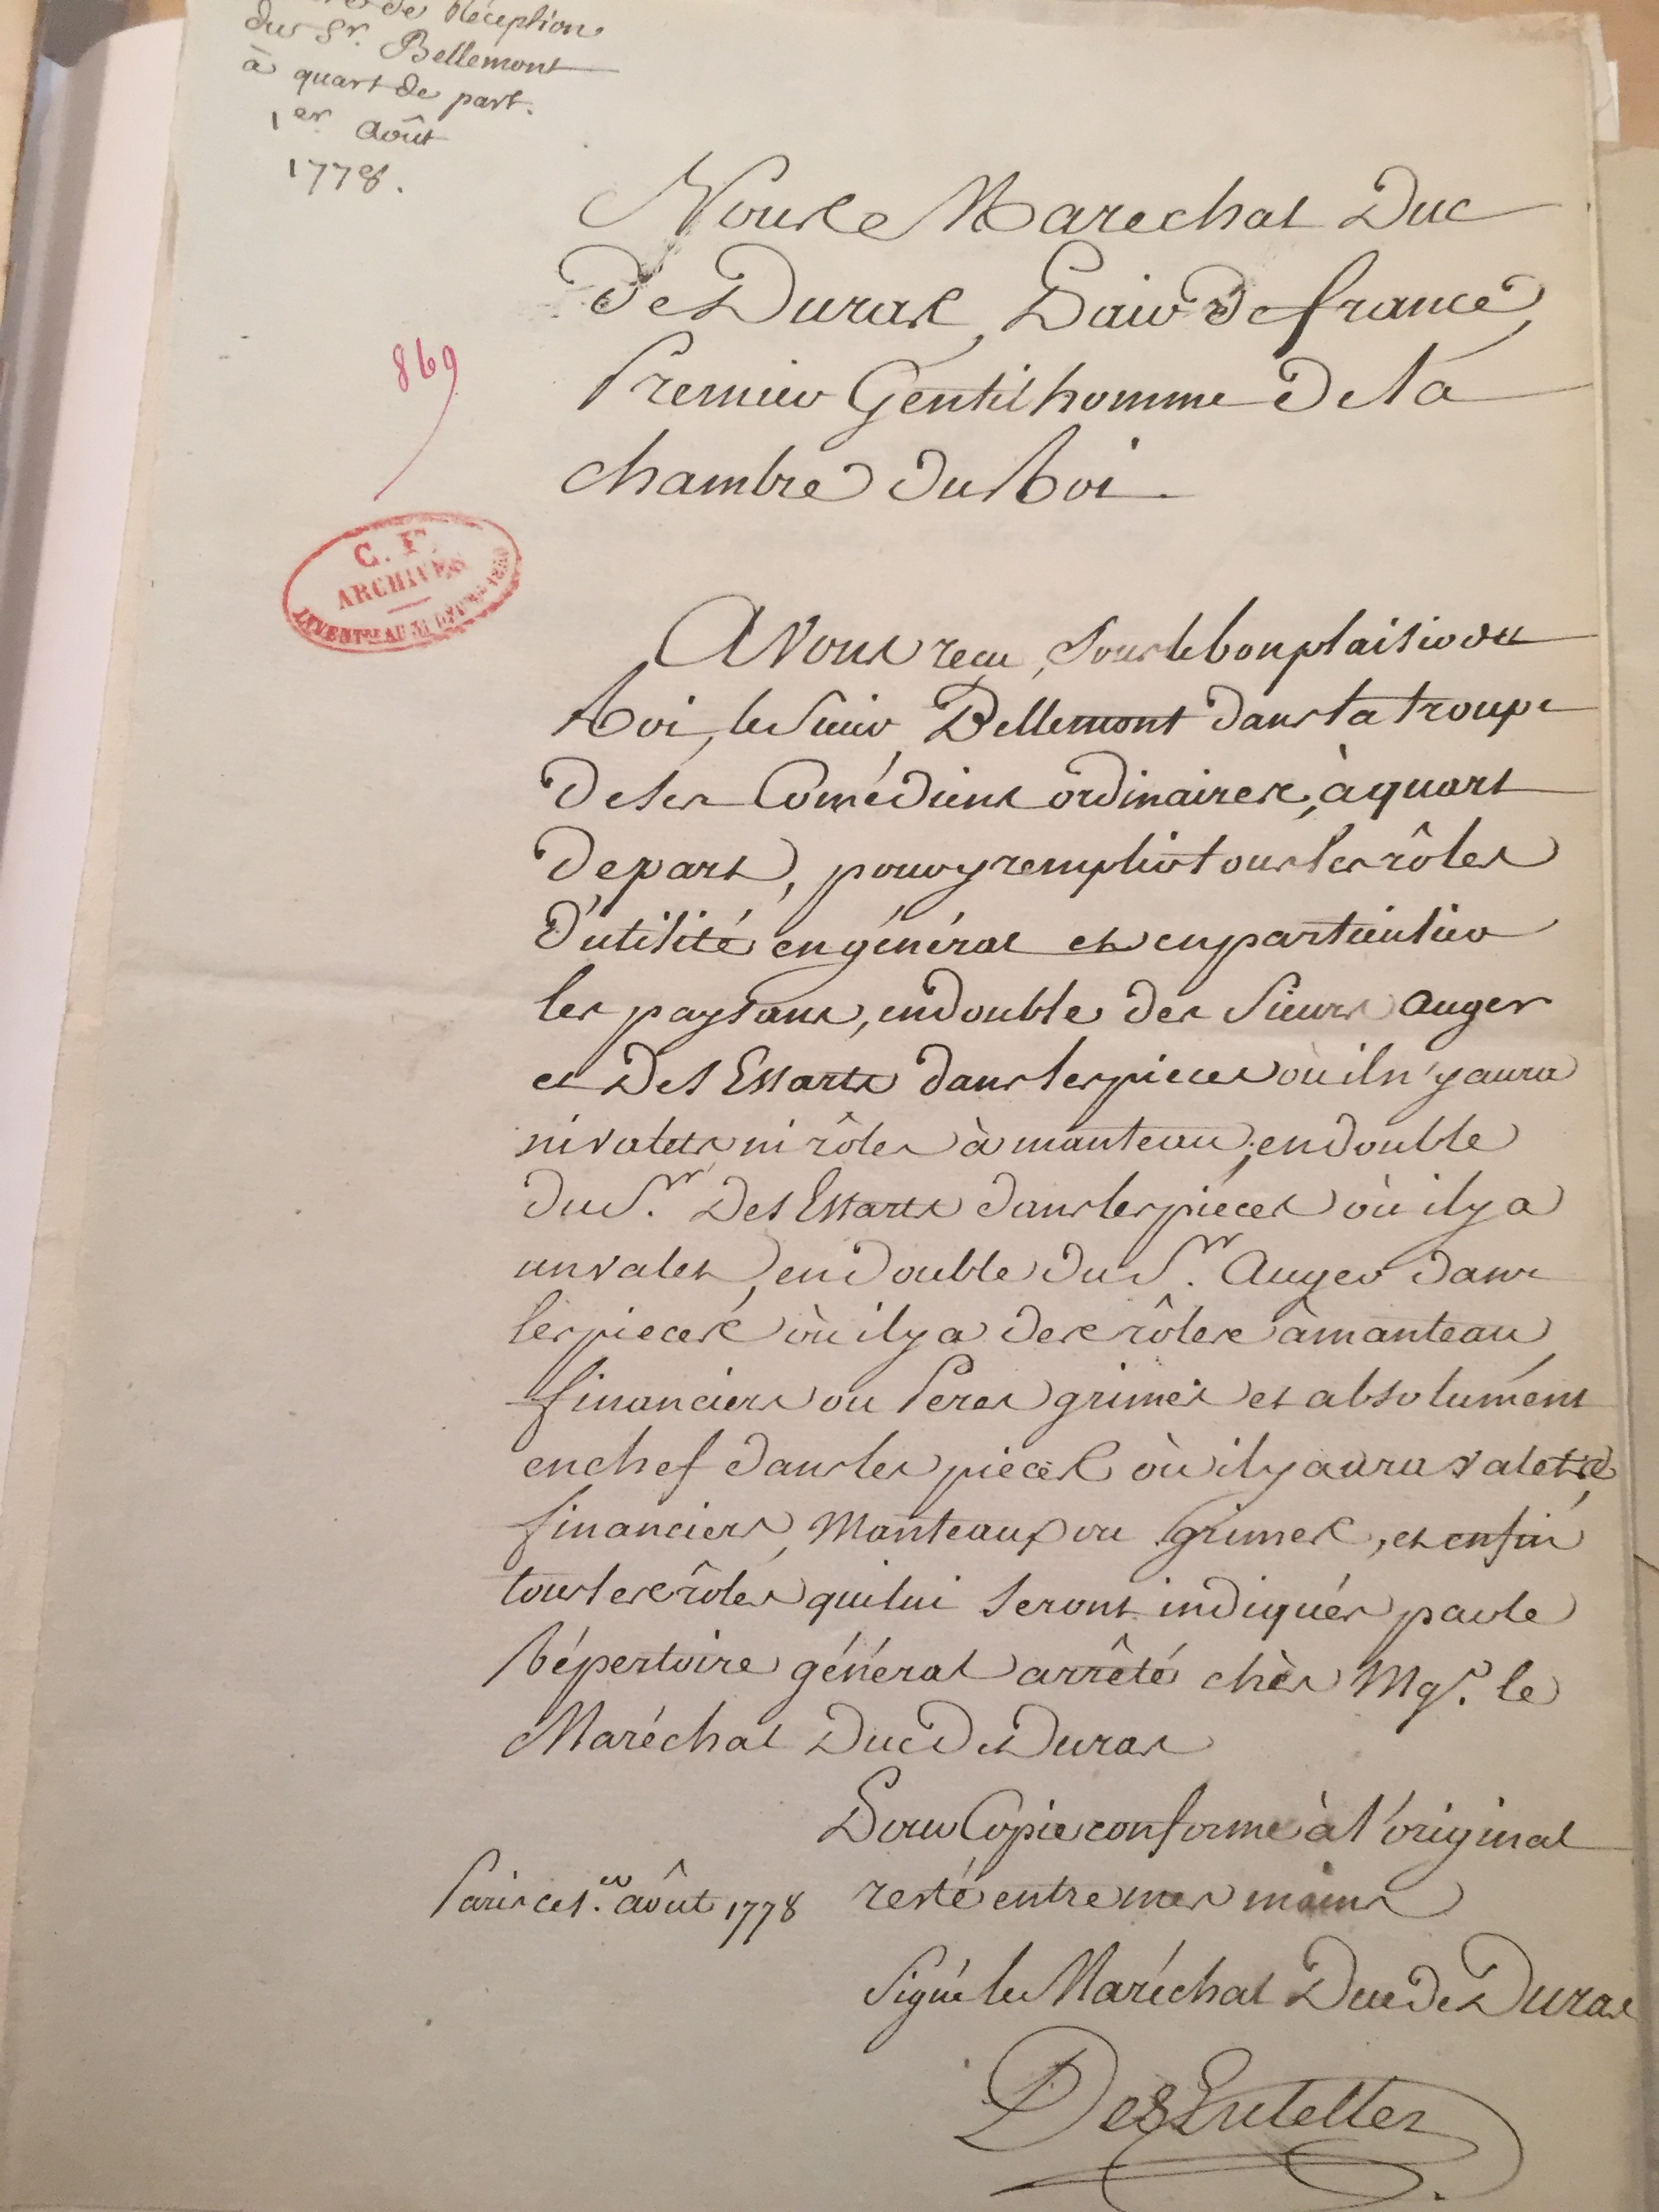 de Réception
du Sr. Bellemont
à quart de part.
1er Août
1778.
Nous le Marechal Duc
de Duras, Pair de france,
Premier Gentilhomme de la
chambre du Roi.
869
C. F.
ARCHIVES
Avons reçu, sous le bon plaisir du
Roi, le Sieur Bellemont dans la troupe
de ses Comédiens ordinaires, à quart
de part, pour y remplir tous les rôles
d'utilité en général et en particulier
les paysans, en double des Sieurs Auger
et Des Essarts dans les pieces où il n'y aura
ni valets, ni rôles à manteau; en double
du Sr. Des Essarts dans les piéces où il y a
un valet, en double du Sr. Auger dans
les pieces où il y a des rôles à manteau,
financiers ou Peres grimés et absolument
en chef dans les pieces où il y aura valets,
financiers, Manteaux ou grimes, et enfin
tous les rôles qui lui seront indiqués par le
Répertoire général arrêté chès Mgr. le
Maréchal Duc de Duras
Pour Copie conforme à l'original
resté entre mes mains
Paris ce 1.er août 1778
Signé le Maréchal Duc de Duras
Des Entelles